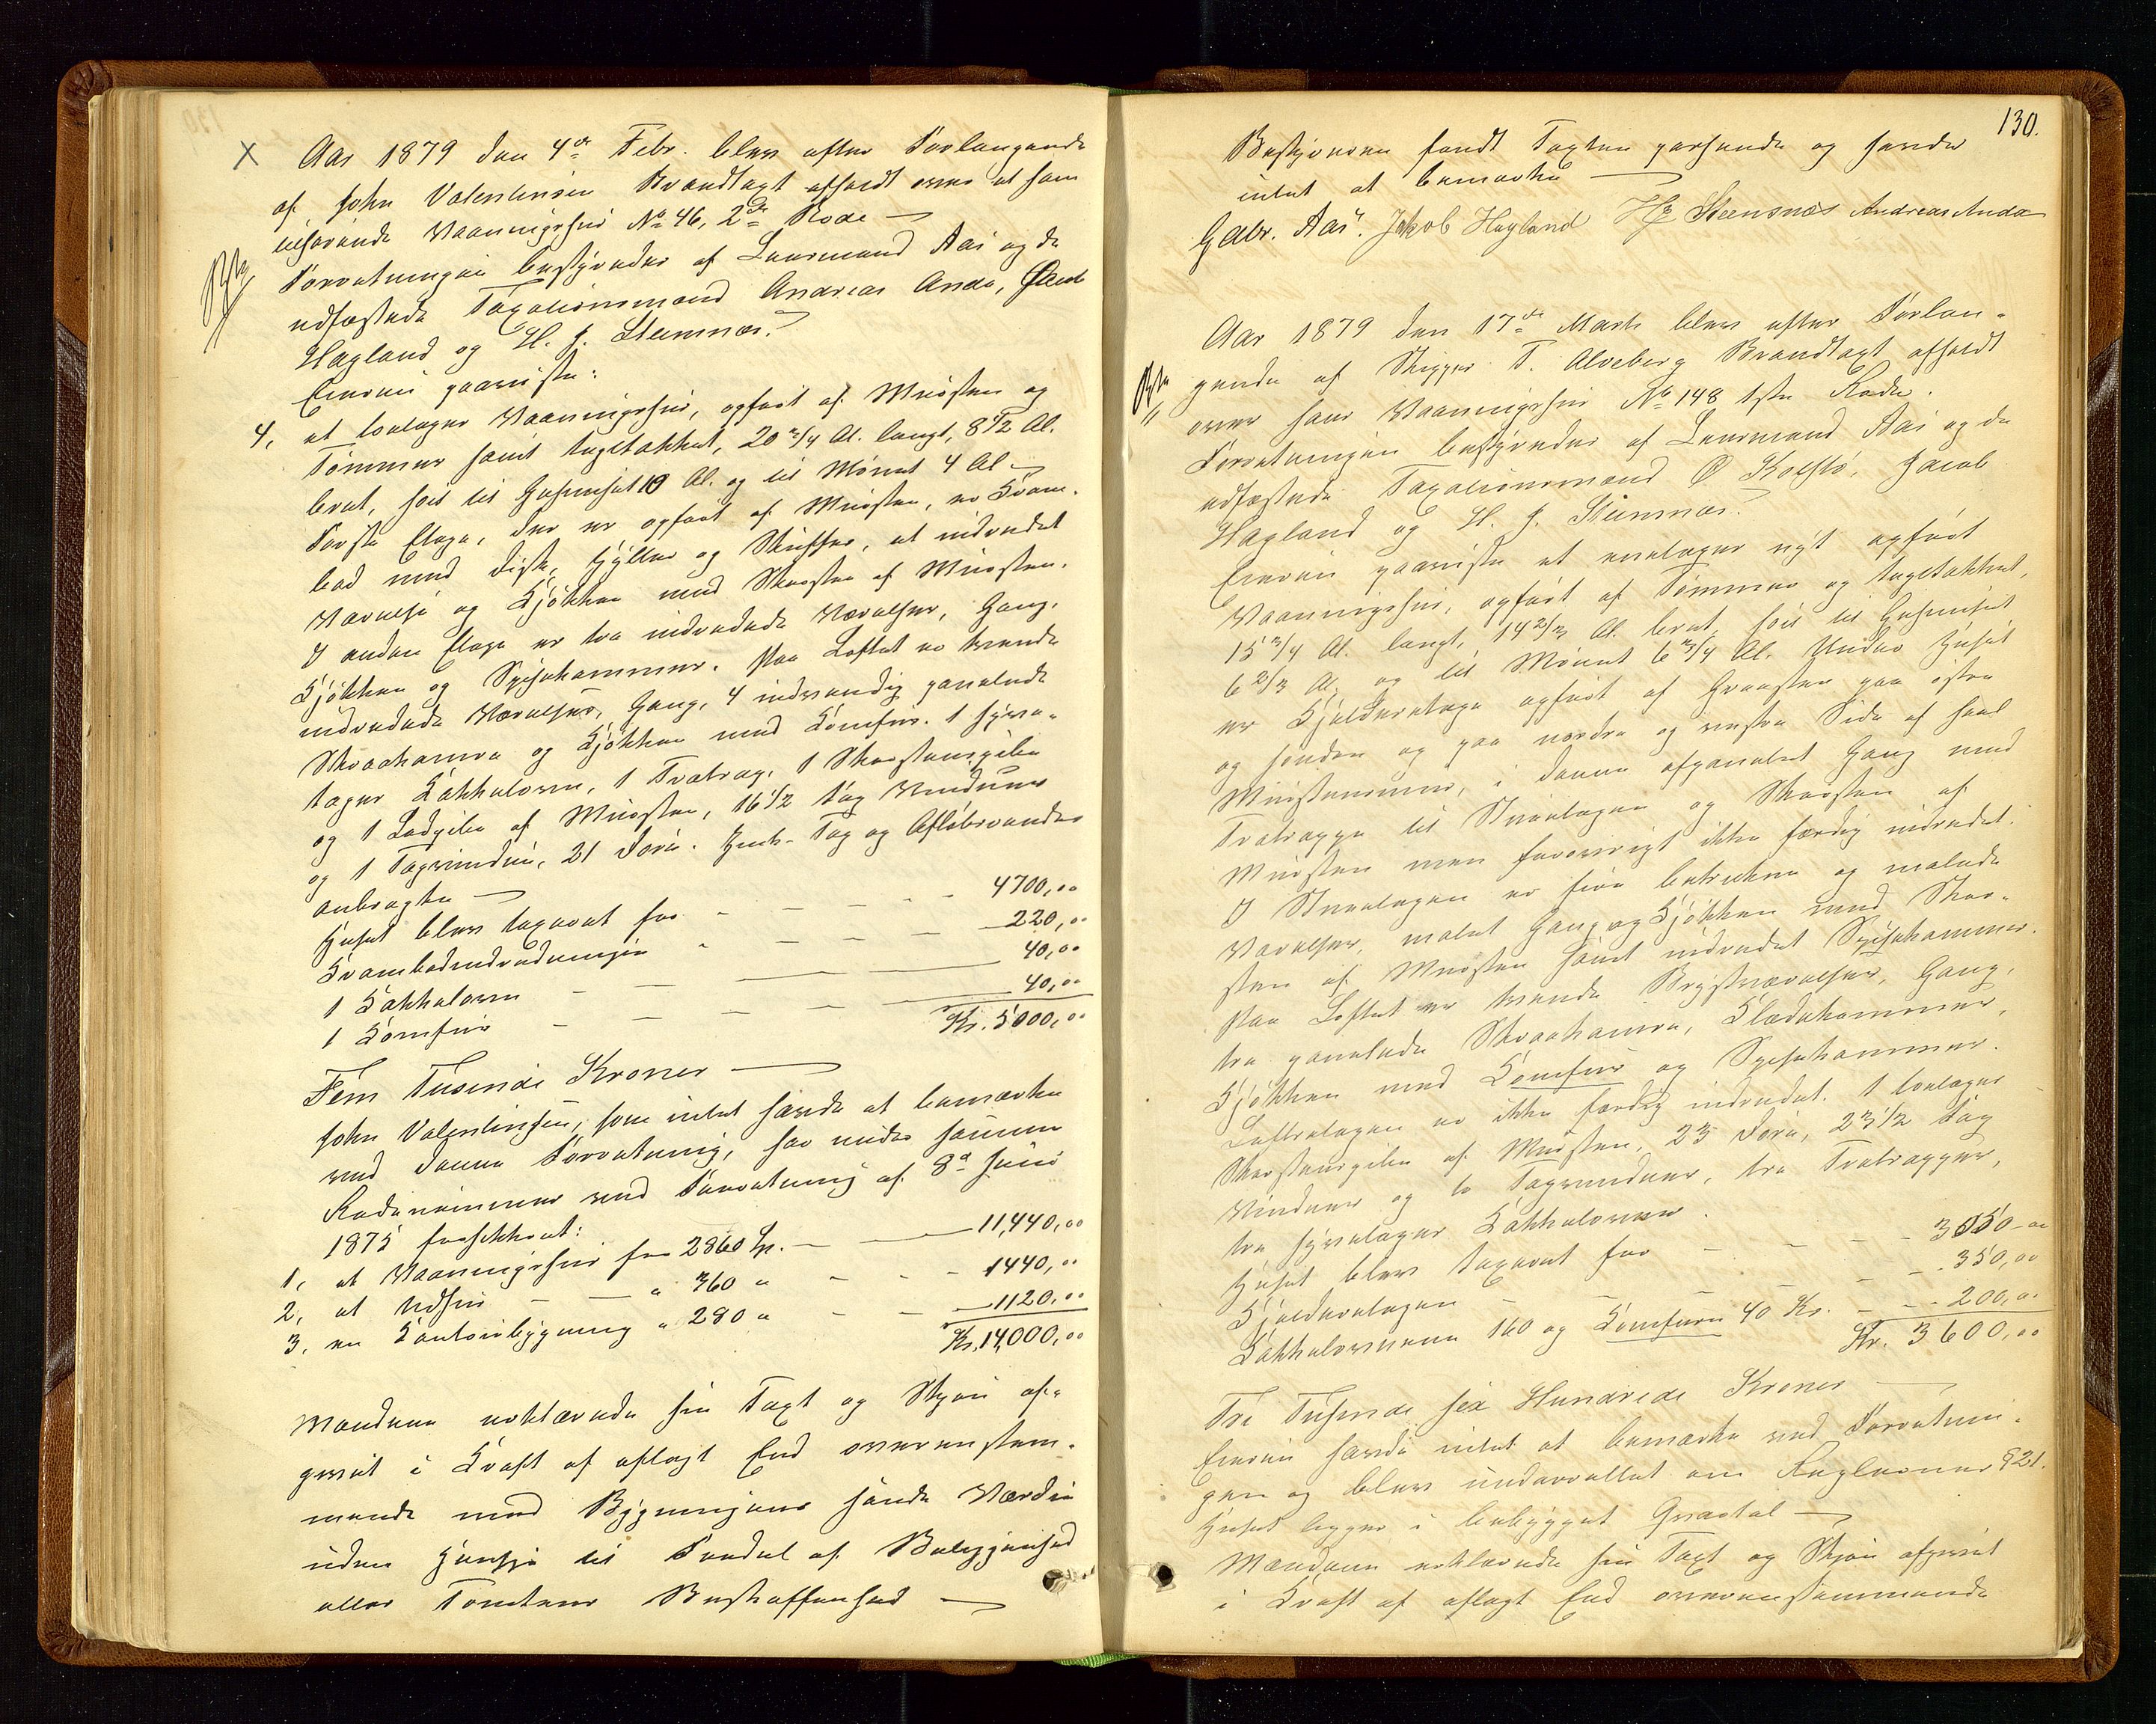 X Aar 1879 den 4de Febr. blev efter Forlangende
af John Valentinsen Brandtaxt afholdt over et ham
tilhørende Vaaningshus No 46, 2de Rode —
Forretningen bestyredes af Lensmand Aas og de
udfæstede Taxationsmænd Andreas Anda, Jacob
Hagland og H. J. Steensnæs.
Eieren paaviste:
4, et toetages Vaaningshus, opført af Mursten og
Tømmer samt tegltækket, 20 3/4 Al. langt, 8 1/2 Al.
bret, høit til Gesimset 10 Al. og til Mønet 4 Al —
Første Etage, der er opført af Mursten, er Kram-
bod med Disk, Hylder og Skuffer, et indredet
Værelse og Kjøkken med Skorsten af Mursten.
I anden Etage er tre indredede Værelser, Gang,
Kjøkken og Spisekammer. Paa Loftet er tvende
indredede Værelser, Gang, 4 indvendig panelede
Skraakamre og Kjøkken med Komfur. 1 syve-
tages Kakkelovn, 1 Trætrap. 1 Skorstenspibe
og 1 Ladpibe af Mursten, 16 1/2 Fag Vinduer
og 1 Tagvindue, 21 Døre. Hush. Tag og Afløbsrender
anbragte —
Huset blev taxeret for - - - - 4700,00
Krambodindredningen - - - - 220,00
1 Kakkelovn - - - 40,00
1 Komfur - - - 40,00
Kr. 5000,00
Fem Tusende Kroner —
John Valentinsen, som intet havde at bemærke
ved denne Forretning, har under samme
Rodenummer ved Forretning af 8de Juni
1875 forsikkret:
1, et Vaaningshus for 2860 Sp. — — 11,440,00
2, et Udhus — — " 360 " - - - 1440,00
3, en Kontorbygning " 280 " - - 1120,00
Kr. 14,000,00
Mændene erklærede sin Taxt og Skjøn af-
given i Kraft af aflagt Eed overenstem-
mende med Bygningens sande Værdi
uden Hensyn til Fordel af Beliggenhed
eller Tomtens Beskaffenhed —
130.
Bestyreren fandt Taxten passende og havde
intet at bemærke —
Gabr. Aas. Jakob Hagland HJ Steensnæs Andreas Anda
Aar 1879 den 17de Marts blev efter Forlan-
gende af Skipper T. Alveberg Brandtaxt afholdt
over hans Vaaningshus No 148 1ste Rode.
Forretningen bestyredes af Lensmand Aas og de
udfæstede Taxationsmænd O Kolstø, Jacob
Hagland og H. J. Steensnæs.
Eieren paaviste et enetages nyt opført
Vaaningshus, opført af Tømmer og tegltækket,
15 3/4 Al. langt, 14 2/3 Al. bret, høit til Gesimset
6 2/3 Al. og til Mønet 6 3/4 Al. Under Huset
er Kjelderetage opført af Graasten paa østre
og søndre og paa nordre og vestre Side af heel
Murstensmur, i denne afpanelet Gang med
Trætrappe til Stueetagen og Skorsten af
Mursten men forøvrigt ikke færdig indredet.
I Stueetagen er fire betrukne og malede
Værelser, malet Gang og Kjøkken med Skor-
sten af Mursten samt indredet Spisekammer.
Paa Loftet er tvende Brystværelser, Gang,
tre panelede Skraakamre, Klædekammer,
Kjøkken med Komfur og Spisekammer.
Loftsetagen er ikke færdig indredet. 1 toetages
Skorstenspibe af Mursten, 23 Døre, 23 1/2 Fag
Vinduer og to Tagvinduer, tre Trætrapper,
tre syvetages Kakkelovner.
Huset blev taxeret for - - - - 3050-00
Kjelderetagen - - - - 350,00
Kakkelovnene 160 og Komfuren 40 Kr. - - - 200,00
Kr. 3600,00
Tre Tusende sex Hundrede Kroner —
Eieren havde intet at bemærke ved Forretnin-
gen og blev underrettet om Reglernes § 21.
Huset ligger i bebygget Qvartal —
Mændene erklærede sin Taxt og Skjøn afgivet
i Kraft af aflagt Eed overensstemmende